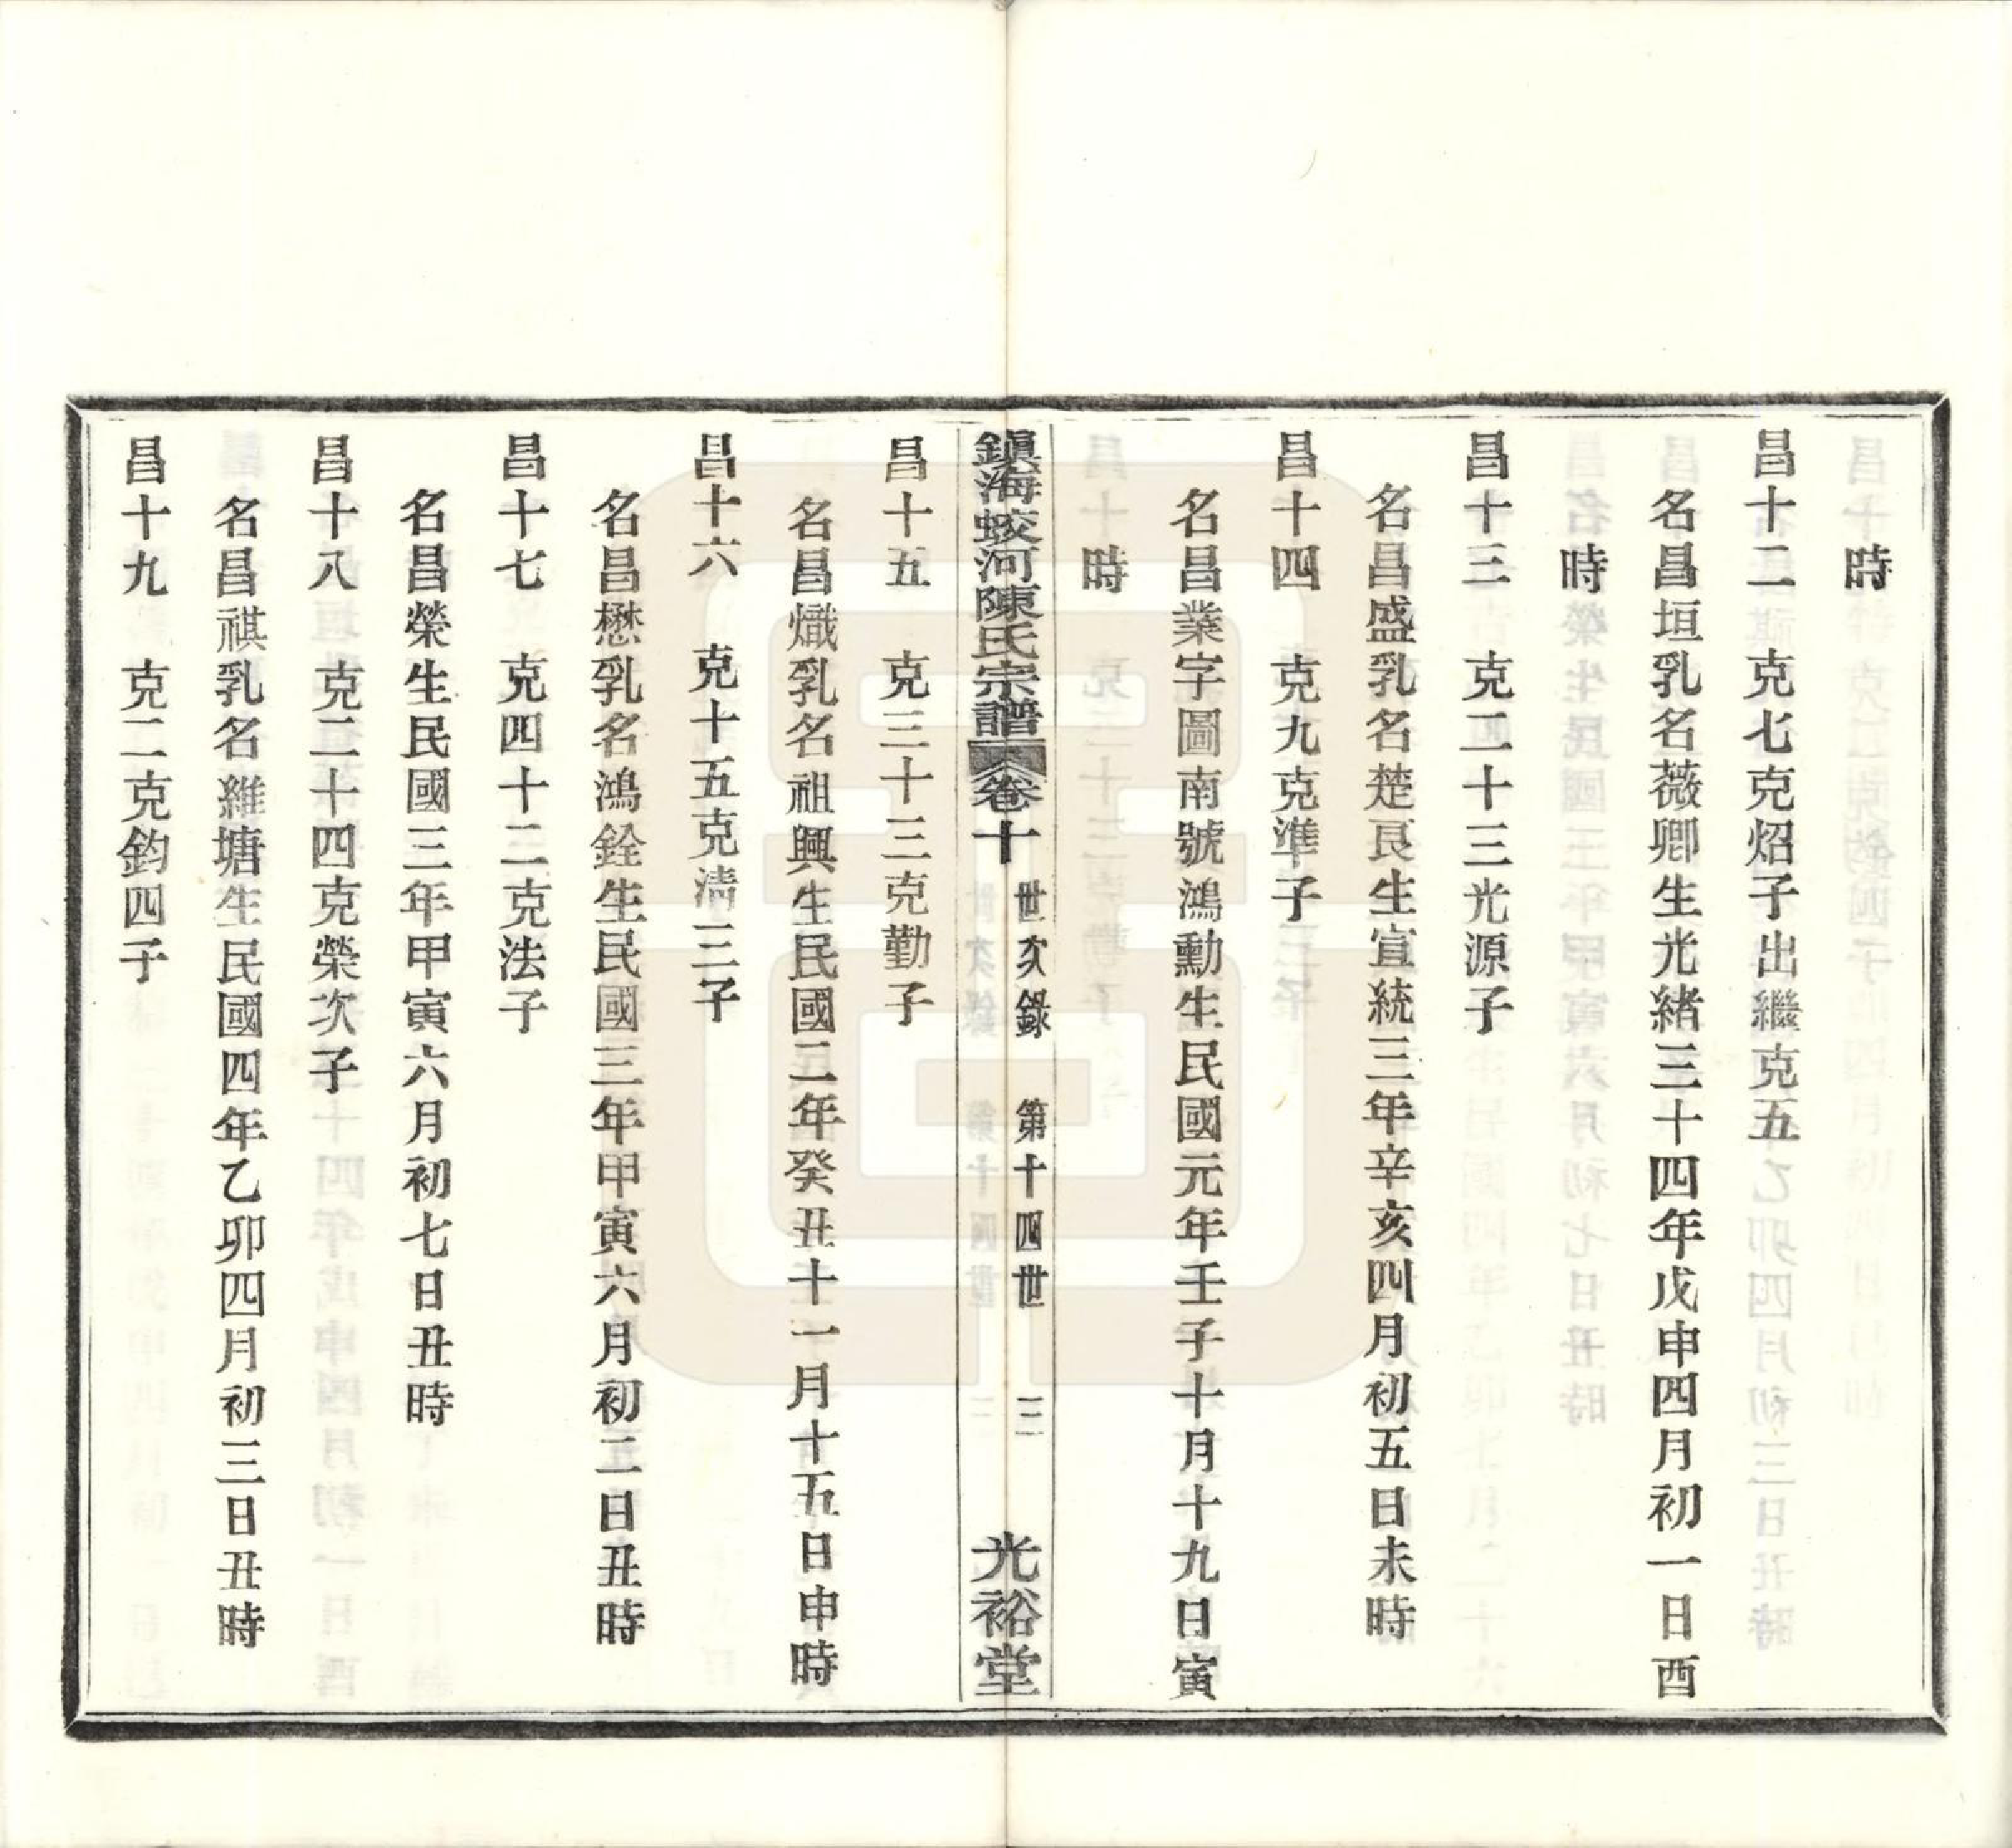 時
昌十二克七克炤子出繼克五
名昌垣乳名薇卿生光緒三十四年戊申四月初一日酉
時
昌十三　克二十三光源子
名昌盛乳名楚良生宣統三年辛亥四月初五日未時
昌十四　克九克準子
名昌業字圖南號鴻勳生民國元年壬子十月十九日寅
時
鎮海蛟河陳氏宗譜　卷十　世次錄　第十四世　二　光裕堂
昌十五　克三十三克勤子
名昌熾乳名祖興生民國二年癸丑十一月十五日申時
昌十六　克十五克清三子
名昌懋乳名鴻銓生民國三年甲寅六月初二日丑時
昌十七　克四十二克法子
名昌榮生民國三年甲寅六月初七日丑時
昌十八　克二十四克榮次子
名昌祺乳名維塘生民國四年乙卯四月初三日丑時
昌十九　克二克鈞四子